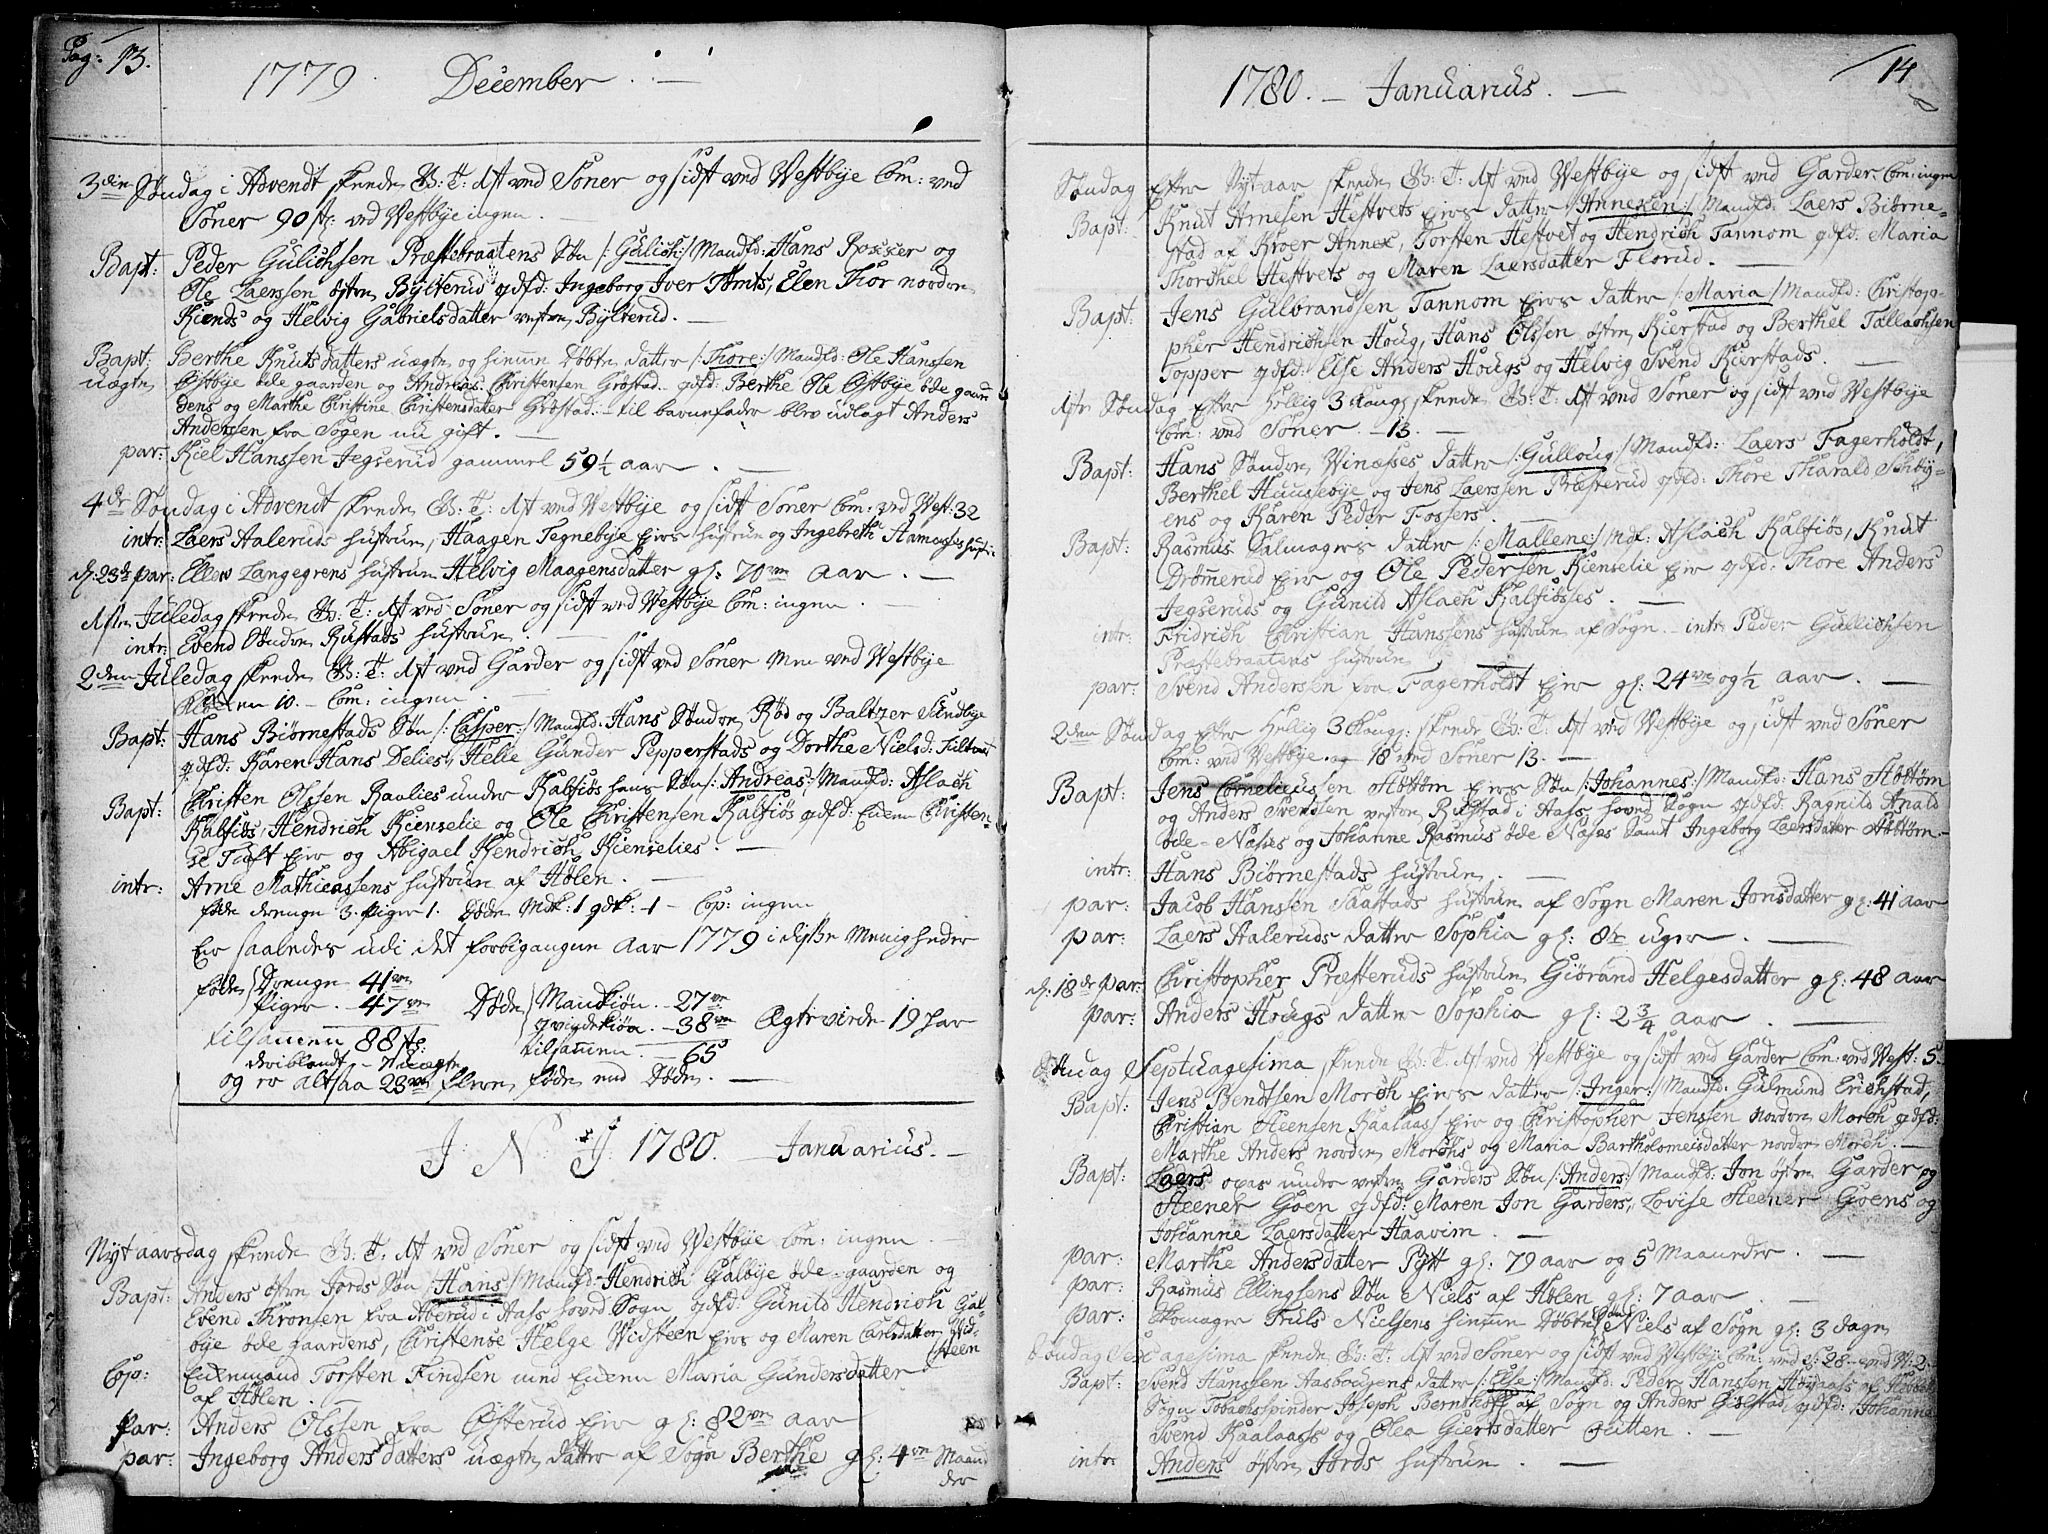 Pag: 13.
1779. December.
3die Søndag i Advendt skeede G: T: Ast ved Soner og sidst ved Westbye Com: ved
Soner 90 st: ved Westbye ingen.
Bapt: Peder Gulichsen Præstebraatens Søn /:Gulich:/ Mandfd: Hans Rosser og
Ole Laersen østre Bylterud qdfd: Ingeborg Iver Tomts, Elen Thor nordre
Kiends og Helvig Gabrielsdatter vestre Bylterud.
Bapt: Berthe Knutsdatters uægte og hiemme Døbte datter /:Thore:/ Mandfd: Ole Hanssen
uægte Østbye øde gaarden og Andreas Christensen Grøstad. qdfd: Berthe Ole Østbye øde gaar
dens og Marthe Christine Christensdatter Grøstad. til barnefader blev udlagt Anders
Andersen fra Sogen nu gift.
par: Kiel Hanssen Jegserud gammel 59½ aar.
4de Søndag i Advendt skeede G: T: Ast ved Westbye og sidst Soner Com: ved West: 32
intr: Laers Aaleruds hustrue, Haagen Tegnebye Eies hustrue og Ingebreth Hamasses hustr:
d: 23de par: Ellev Langegrens hustrue Helvig Maagensdatter gl: 70ve Aar.
1ste Juledag skeede G: T: Ast ved Soner og sidst ved Westbye Com: ingen.
intr: Evend Søndre Rustads hustrue.
2den Juledag skeede G: T: Ast ved Garder og sidst ved Soner Men ved Westbye
Klokken 10. Com: ingen.
Bapt: Hans Biørnestads Søn /:Casper:/ Mandfd: Hans Søndre Rød og Baltzer Sundbye
qdfd: Karen Hans Delies, Helle Gunder Pepperstads og Dorthe Nielsd:
Bapt: Christen Olssen Raalies under Kalfiøs hans Søn /:Andreas:/ Mandfd: Aslach
Kalfiøs, Hendrich Kienselie og Ole Christensen Kalfiøs qdfd: Christen-
se Toft Eie og Abigael Hendrich Kienselies.
intr: Arne Mathieassens hustrue af Hølen.
føde drenge 3. Piger 1. Døde Mdk: 1 qdk: 1 Cop: ingen
Er saaledes udi det forbigangne Aar 1779 i disse Menigheder
føde Drenge 41ve
Piger. 47ve Døde Mandkiøn. 27ve
qvindekiøn. 38ve Ægteviede 19 Par
tilsamen 88 st: tilsamen. 65
deriblandt 7 uægte
og er altsaa 23ve flere føde end Døde.
J: N: J: 1780. Januarius.
Nyt aarsdag skeede G: T: Ast ved Soner og sidst ved Westbye Com: ingen
Bapt: Anders østre Jords Søn /:Hans:/ Mandfd: Hendrich Galbye øde gaarden og
Evend Thronsen fra Aberud i Aass hoved Sogn qdfd: Gunild Hendrich Gal-
bye øde gaardens, Christense Helge Widsteen Eies og Maren Carlsdatter Vid-
steen
Cop: Enkemand Torsten Findsen med Enken Maria Gundersdatter
af Hølen.
Par: Anders Olssen fra Østerud Eie gl: 82ve aar
par: Ingeborg Andersdatters uægte datter af Sogn Berthe gl: 4ve Maane
der
14
1780. Januarius.
Søndag Efter Nyt aar skeede G: T: Ast ved Westbye og sidst ved Garder Com: ingen
Bapt: Knut Arnesen Hestvets Eies datter /:Anneken:/ Mandfd: Laers Biørne-
stad af Kroer Annex, Torsten Hestvet og Hendrich Tannom qdfd: Maria
Thorthel Hestvets og Maren Laersdatter Florud.
Bapt: Jens Gulbrandsen Tannom Eies datter /:Maria:/ Mandfd: Christop-
pher Hendrichsen Houg, Hans Olssen østre Kierstad og Berthel Tallachsen
Topper qdfd: Else Anders Hougs og Helvig Svend Kierstads.
1ste Søndag Efter Hellig 3 Kong: skeede G: T: Ast ved Soner og sidst ved Westbye
Com: ved Soner 13.
Bapt: Hans Søndre Winæsses datter /:Gulloug:/ Mandfd: Laers Fagerholdt,
Berthel Huusebye og Jens Laerssen Præsterud qdfd: Thore Tharald Schby-
ens og Karen Peder Fossers.
Bapt: Rasmus Salmagers datter /:Mallene:/ Mdf: Aslach Kalfiøs, Knut
Drømerud Eie og Ole Pedersen Kienselie Eie qdfd: Thore Anders
Jegseruds og Gunild Aslach Kalfiøsses.
intr: Fridrich Christian Hanssens hustrue af Sogn intr: Peder Gullichsen
Præstebraatens hustrue
par: Svend Andersen fra Fagerholdt Eie gl: 24ve og ½ aar.
2den Søndag efter Hellig 3 Kong: skeede G: T: Ast ved Westbye og sidst ved Soner
Com: ved Westbye 18 ved Soner 13.
Bapt: Jens Corneliussen Støttøm Eies Søn /:Johannes:/ Mandfd: Hans Støttøm
og Anders Svendsen vestre Rustad i Aass hoved Sogn qdfd: Ragnild Anald
øde-Næsses og Johanne Rasmus øde Næses samt Ingeborg Laersdatter Støttøm.
intr: Hans Biørnestads hustrue.
par: Jacob Hanssen Saastads hustrue af Sogn Maren Jonsdatter gl: 41 aar
par: Laers Aaleruds datter Sophia gl: 8te uger.
d: 18de par: Christopher Præsteruds hustrue Giørand Helgesdatter gl: 48 aar
par: Anders Hougs datter Sophia gl: 2¾ aar.
Søndag Septuagesima skeede G: T: Ast ved Westbye og sidst ved Garder Com: ved West: 5.
Bapt: Jens Bendtsen Morch Eies datter /:Inger:/ Mandfd: Gulmund Erichstad,
Christian Steensen Raalaas Eie og Christopher Jenssen nordre Morch qdfd:
Marthe Anders nordre Morchs og Maria Bartholomeisdatter nordre Morch.
Bapt: Laers opas under vestre Garders Søn /:Anders:/ Mandfd: Jon østre Garder og
Steener Goen qdfd: Maren Jon Garders, Lovise Steener Goens og
Johanne Laersdatter Haavim.
par: Marthe Andersdatter Pytt gl: 79 aar og 5 Maaneder.
par: Rasmus Ellingsens Søn Niels af Hølen gl: 7 aar.
par: Skomager Truls Nielsens hiemme Døbte Søn Niels af Sogn gl: 3 dage
Søndag Sexagesima skeede G: T: Ast ved Soner og sidst ved Westbye Com: ved S: 28 ved W: 2.
Bapt: Svend Hanssen Aasbougens datter /:Else:/ Mandfd: Peder Hanssen Høyaas af
Sogn Tobachsspinder Joseph Bernthoff af Sogn og Anders Gislestad, qdfd: Johanne
Svend Raalaass og Olea Giertsdatter Qvitten.
intr: Anders østre Jords hustrue.